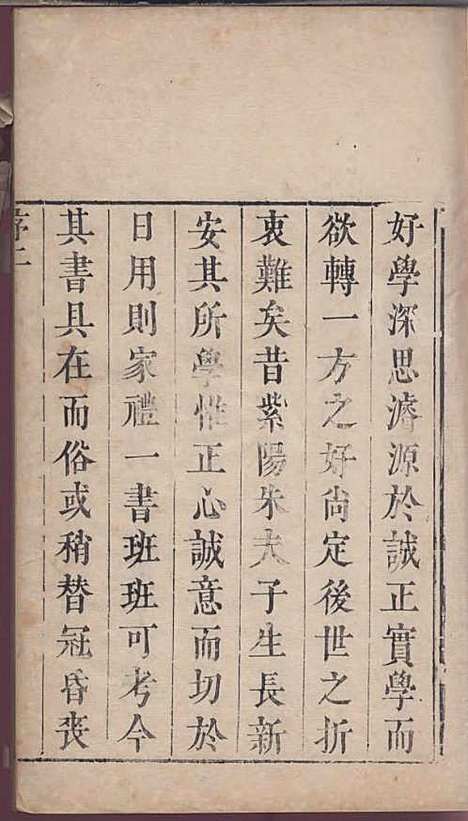 好學深思濬源於誠正實學而
欲轉一方之好尚定後世之折
衷難矣昔紫陽朱夫子生長新
安其所學惟正心誠意而切於
日用則家禮一書班班可考今
其書具在而俗或稍替冠昏喪
序二